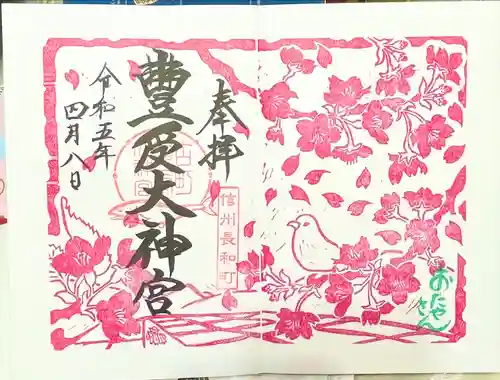 奉拝
豊受大神宮
令和五年
四月八日
信州長和町
おたや
さん